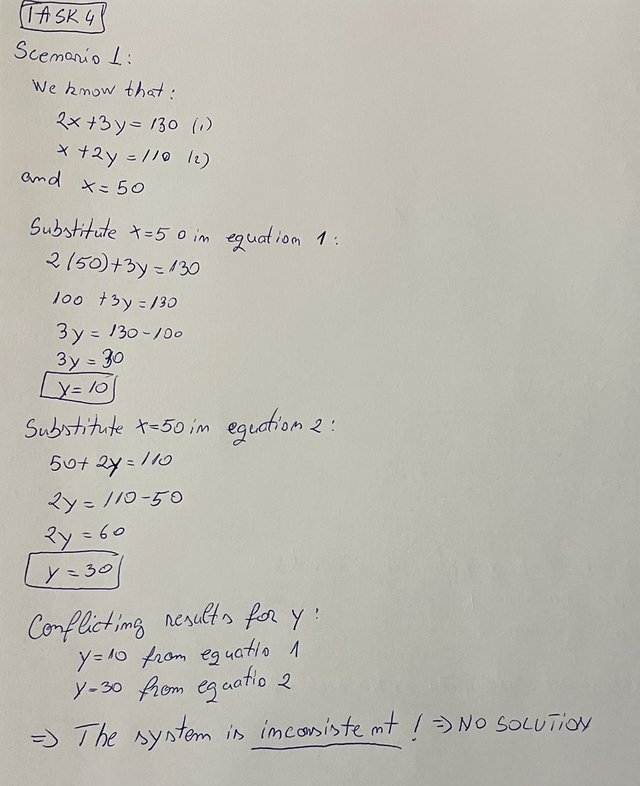 TASK 4
Scenario 1:
We know that:
2x+3y=130 (1)
x+2y=110 (2)
and x=50
Substitute x=50 in equation 1:
2(50)+3y=130
100+3y=130
3y=130-100
3y=30
y=10
Substitute x=50 in equation 2:
50+2y=110
2y=110-50
2y=60
y=30
Conflicting results for y:
y=10 from equatio 1
y=30 from equatio 2
⇒ The system is inconsistent! ⇒ NO SOLUTION